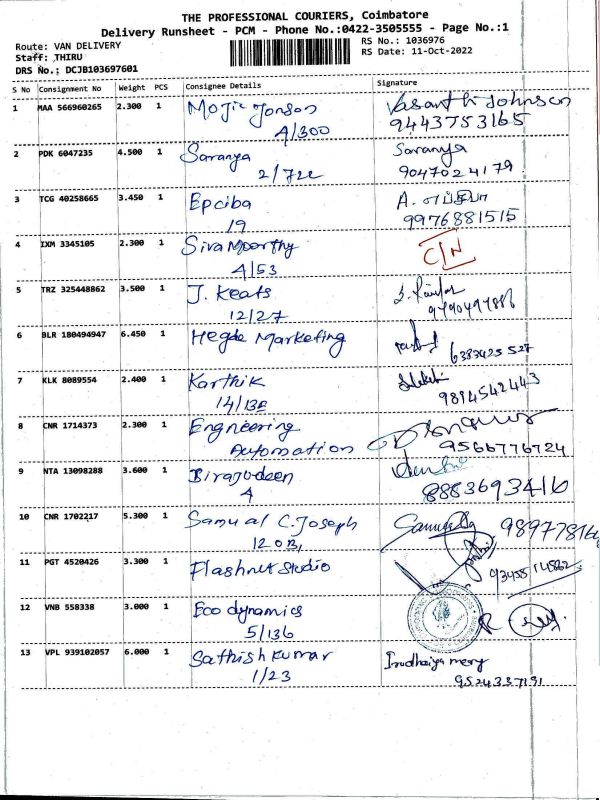 THE PROFESSIONAL COURIERS, Coimbatore
Delivery Runsheet - PCM - Phone No.:0422-3505555 - Page No.:1
Route: VAN DELIVERY
RS No.: 1036976
Staff: THIRU
RS Date: 11-Oct-2022
DRS No.: DCJB103697601
S No Consignment No Weight PCS Consignee Details Signature
1 MAA 566960265 2.300 1 Mojic Jonson Vasanthi Johnson
A/300 9443753165
2 PDK 6047235 4.500 1 Saranya Saranya
2/722 9047024179
3 TCG 40258665 3.450 1 Epciba A. எப்சிபா
19 9976881515
4 IXM 3345105 2.300 1 Siva Moorthy C/N
A/53
5 TRZ 325448862 3.500 1 J. Keats
12/27 9790497886
6 BLR 180494947 6.450 1 Hegde Marketing
6383425527
7 KLK 8089554 2.400 1 Karthik
14/13 9894542443
8 CNR 1714373 2.300 1 Engneering
Automation 9566776724
9 NTA 13098288 3.600 1 Birajudeen
A 8883693416
10 CNR 1702217 5.300 1 Samual C. Joseph
12 0B1
11 PGT 4520426 3.300 1 Flashnet Studio
12 VNB 558338 3.000 1 Eco dynamics
5/136
13 VPL 939102057 6.000 1 Sathish Kumar Irudhaiya mery
1/23 9524337191